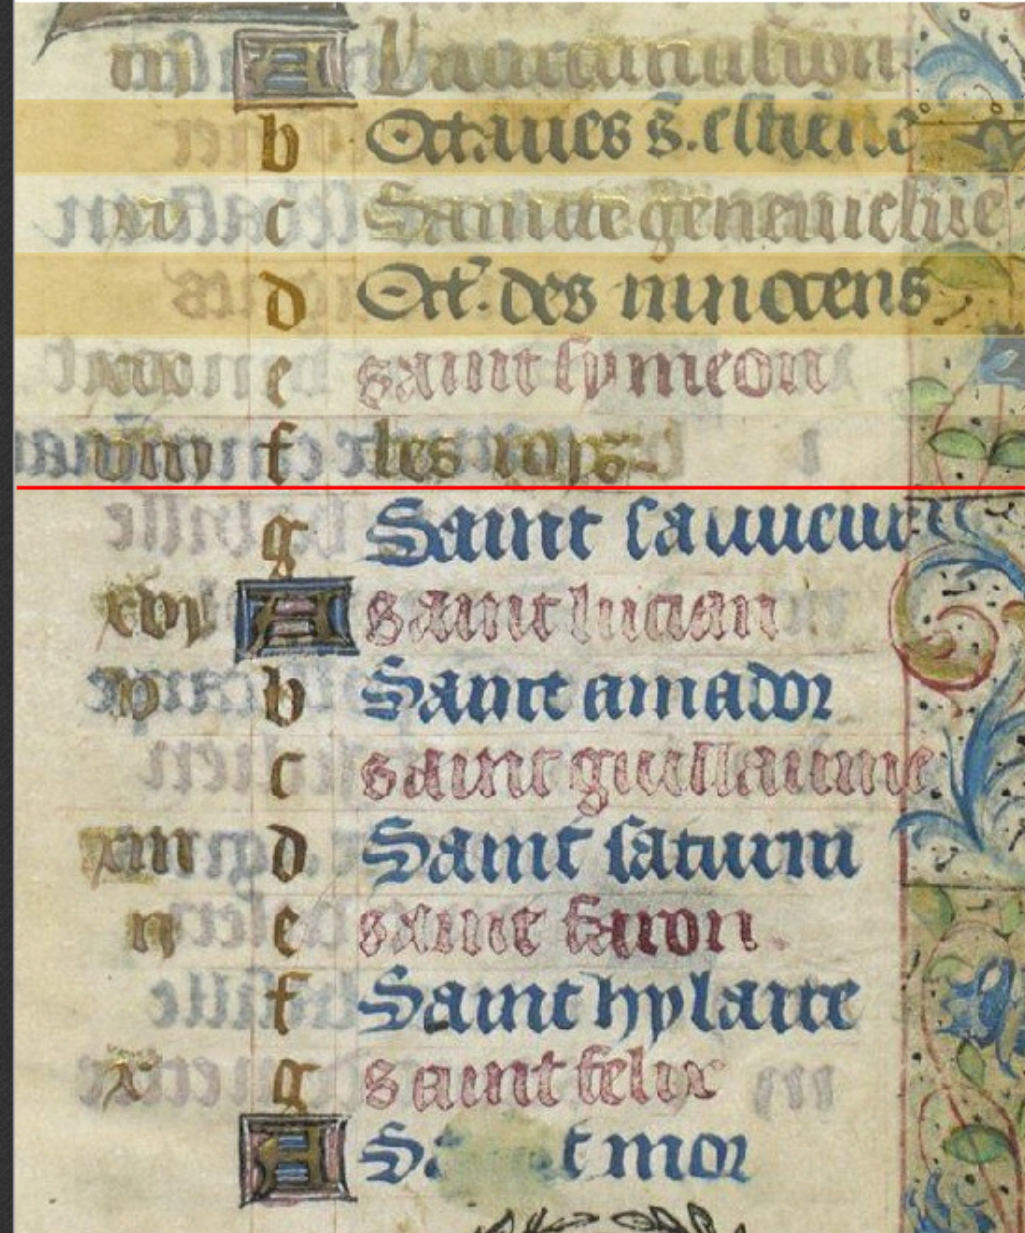 A La circuncision
b Octaues s. estiene
c Saincte geneuiefue
d Oct. des innocens
e saint symeon
f les rois
g Saint sauueur
xvi A saint lucian
v b Saint amador
c saint guillaume
xiii d Saint saturin
ii e saint
f Saint hylaire
x g saint felix
A mor